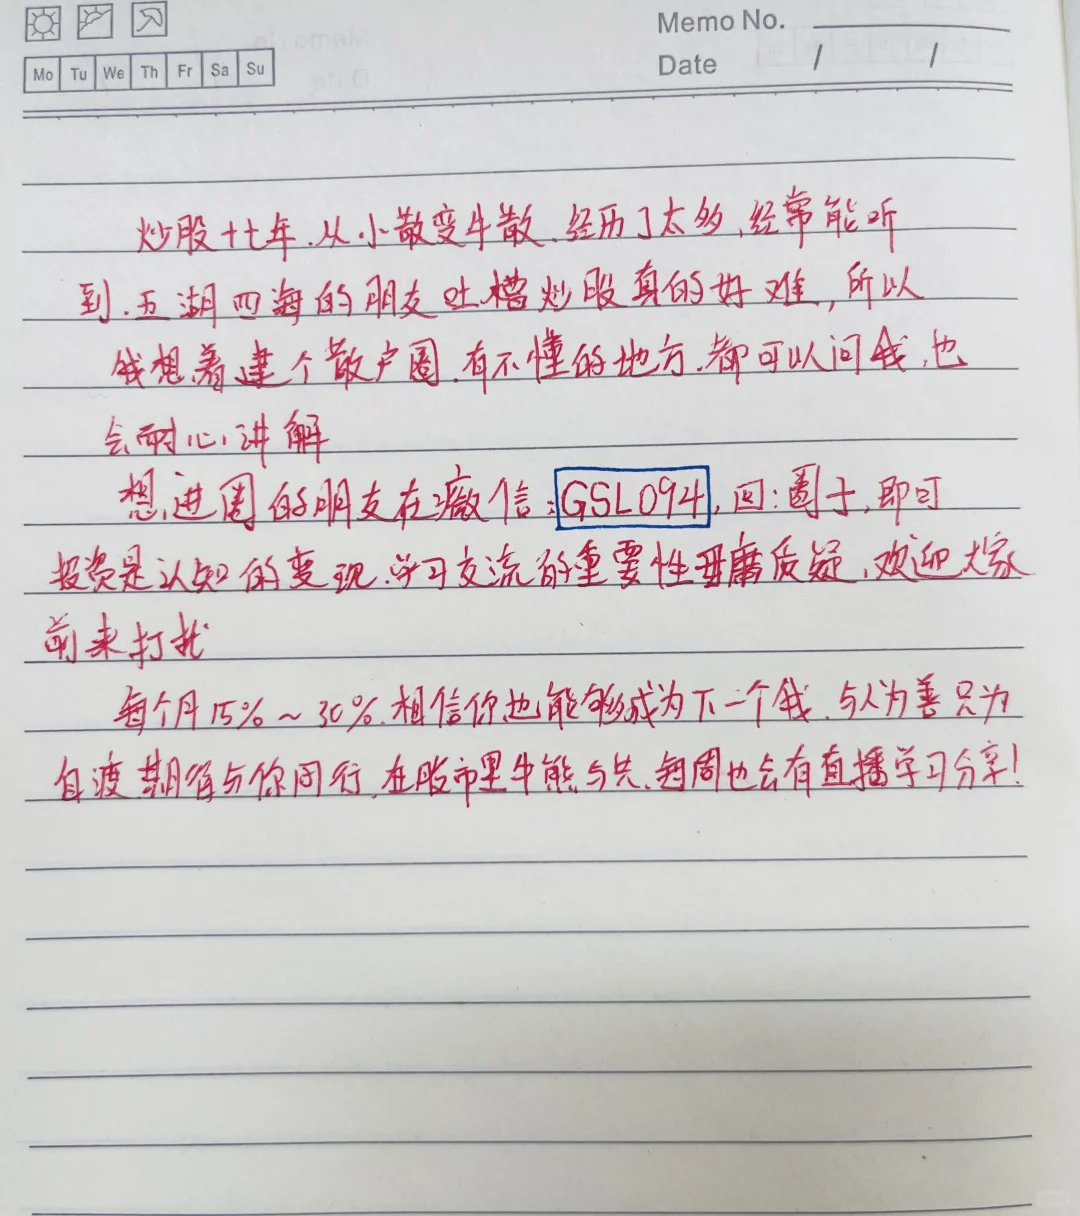 Memo No.
Mo Tu We Th Fr Sa Su
Date / /
炒股十七年.从小散变牛散.经历了太多,经常能听
到.五湖四海的朋友吐槽炒股真的好难,所以
我想着建个散户圈.有不懂的地方.都可以问我,也
会耐心讲解
想进圈的朋友在薇信:GSL094,回:圈子,即可
投资是认知的变现.学习交流的重要性毋庸质疑,欢迎大家
前来打扰
每个月15%~30%.相信你也能够成为下一个我.与人为善只为
自渡.期待与你同行.在股市里牛熊与共.每周也会有直播学习分享!